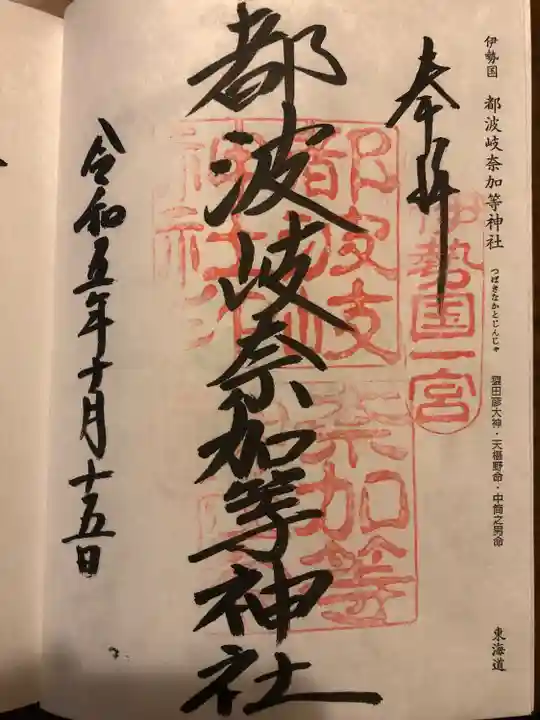 伊勢国 都波岐奈加等神社 つばきなかとじんじゃ 猿田彦大神・天椹野命・中筒之男命 東海道
奉拝
伊勢国一宮
都波岐奈加等神社
都波岐
奈加等
令和五年十月十五日